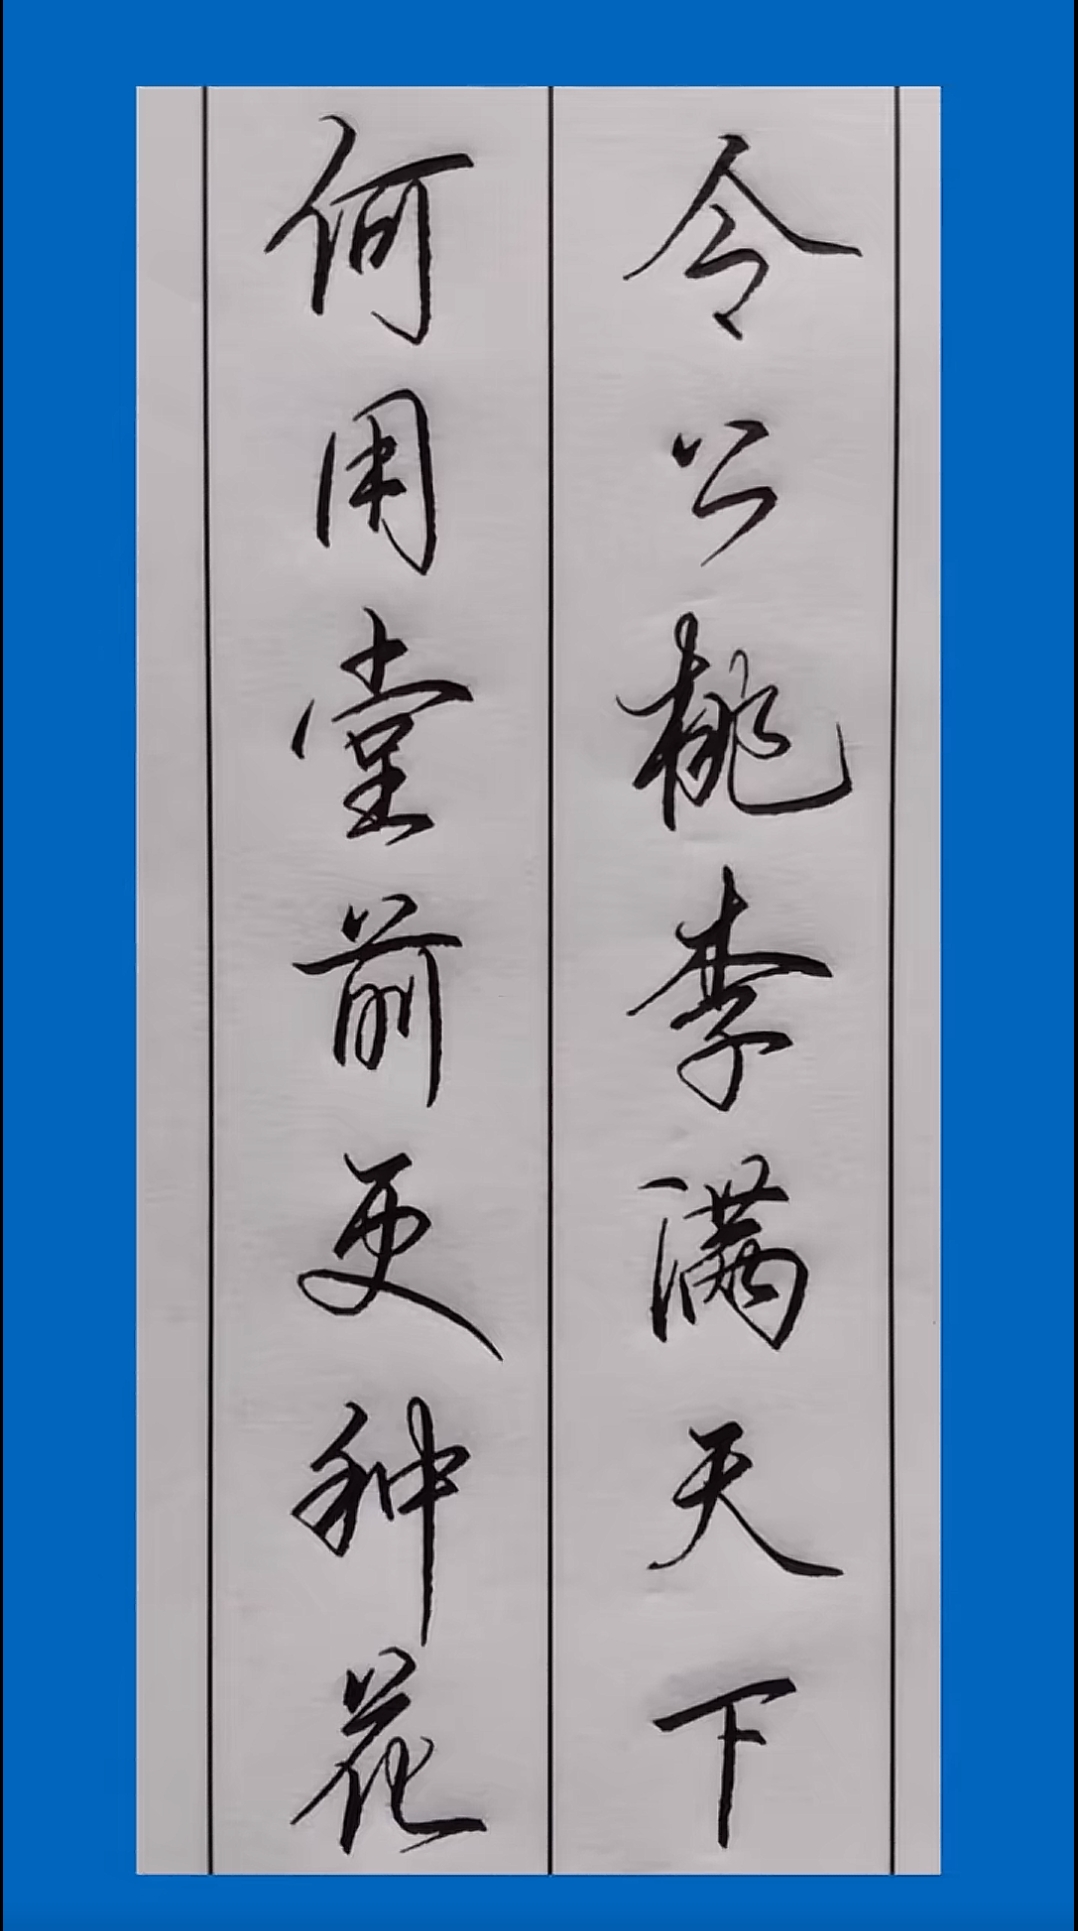 令公桃李满天下
何用堂前更种花